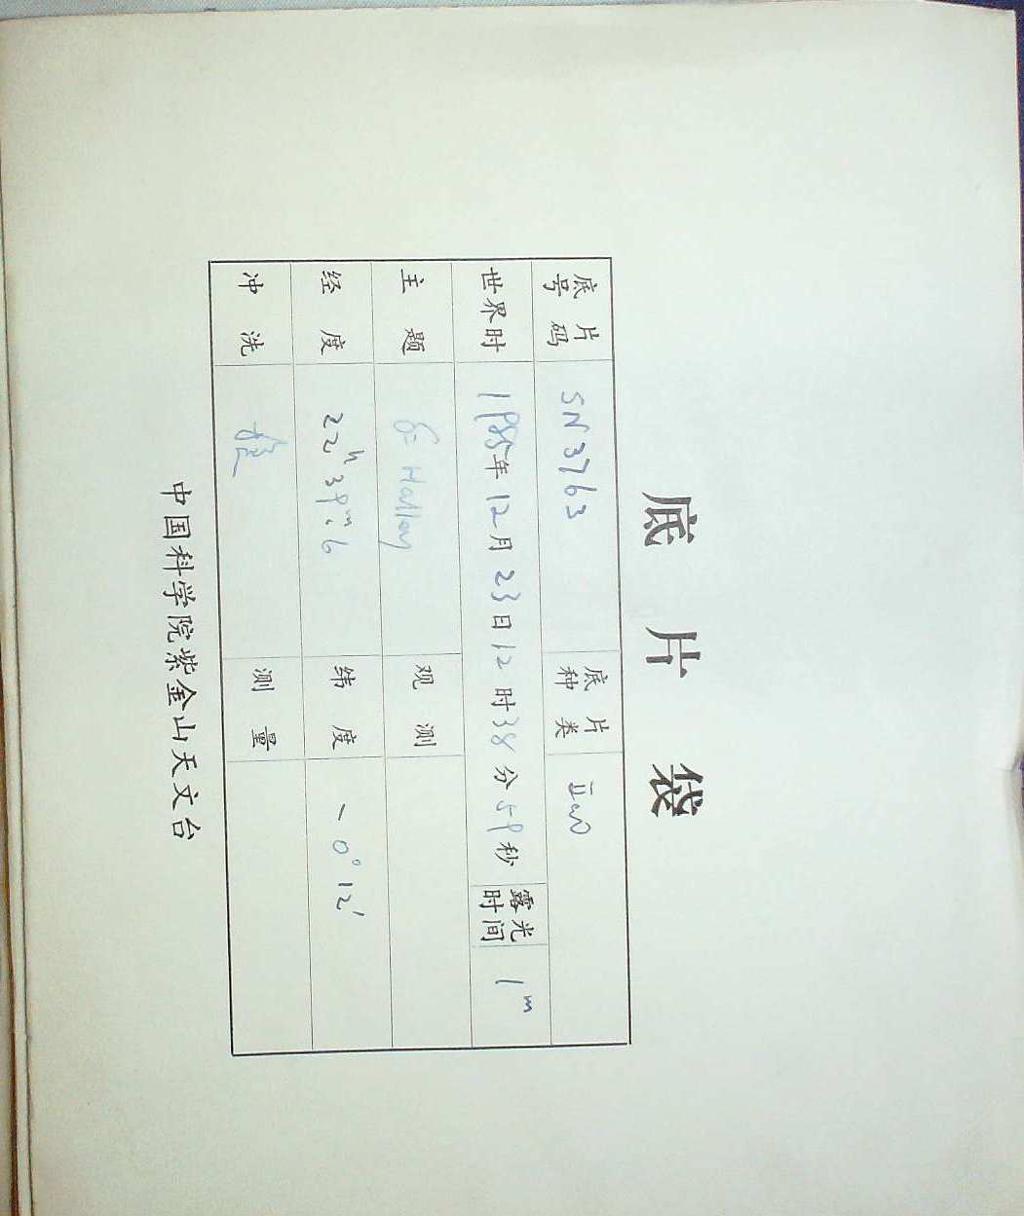 底片袋
底片号码 SN3763 底片种类 IIaO
世界时 1985年12月23日12时38分59秒 露光时间 1m
主题 Halley 观测
经度 22h39m.6 纬度 -0°12′
冲洗 测量
中国科学院紫金山天文台